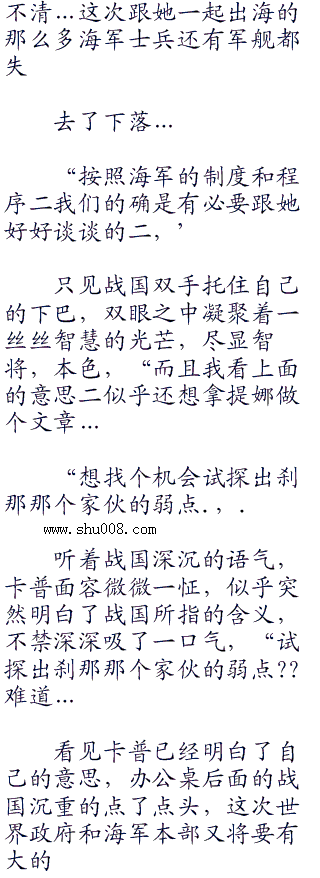 不清…这次跟她一起出海的
那么多海军士兵还有军舰都
失
去了下落…
“按照海军的制度和程
序二我们的确是有必要跟她
好好谈谈的二，’
只见战国双手托住自己
的下巴，双眼之中凝聚着一
丝丝智慧的光芒，尽显智
将，本色，“而且我看上面
的意思二似乎还想拿提娜做
个文章…
“想找个机会试探出刹
那那个家伙的弱点.，.
www.shu008.com
听着战国深沉的语气，
卡普面容微微一怔，似乎突
然明白了战国所指的含义，
不禁深深吸了一口气，“试
探出刹那那个家伙的弱点??
难道…
看见卡普已经明白了自
己的意思，办公桌后面的战
国沉重的点了点头，这次世
界政府和海军本部又将要有
大的